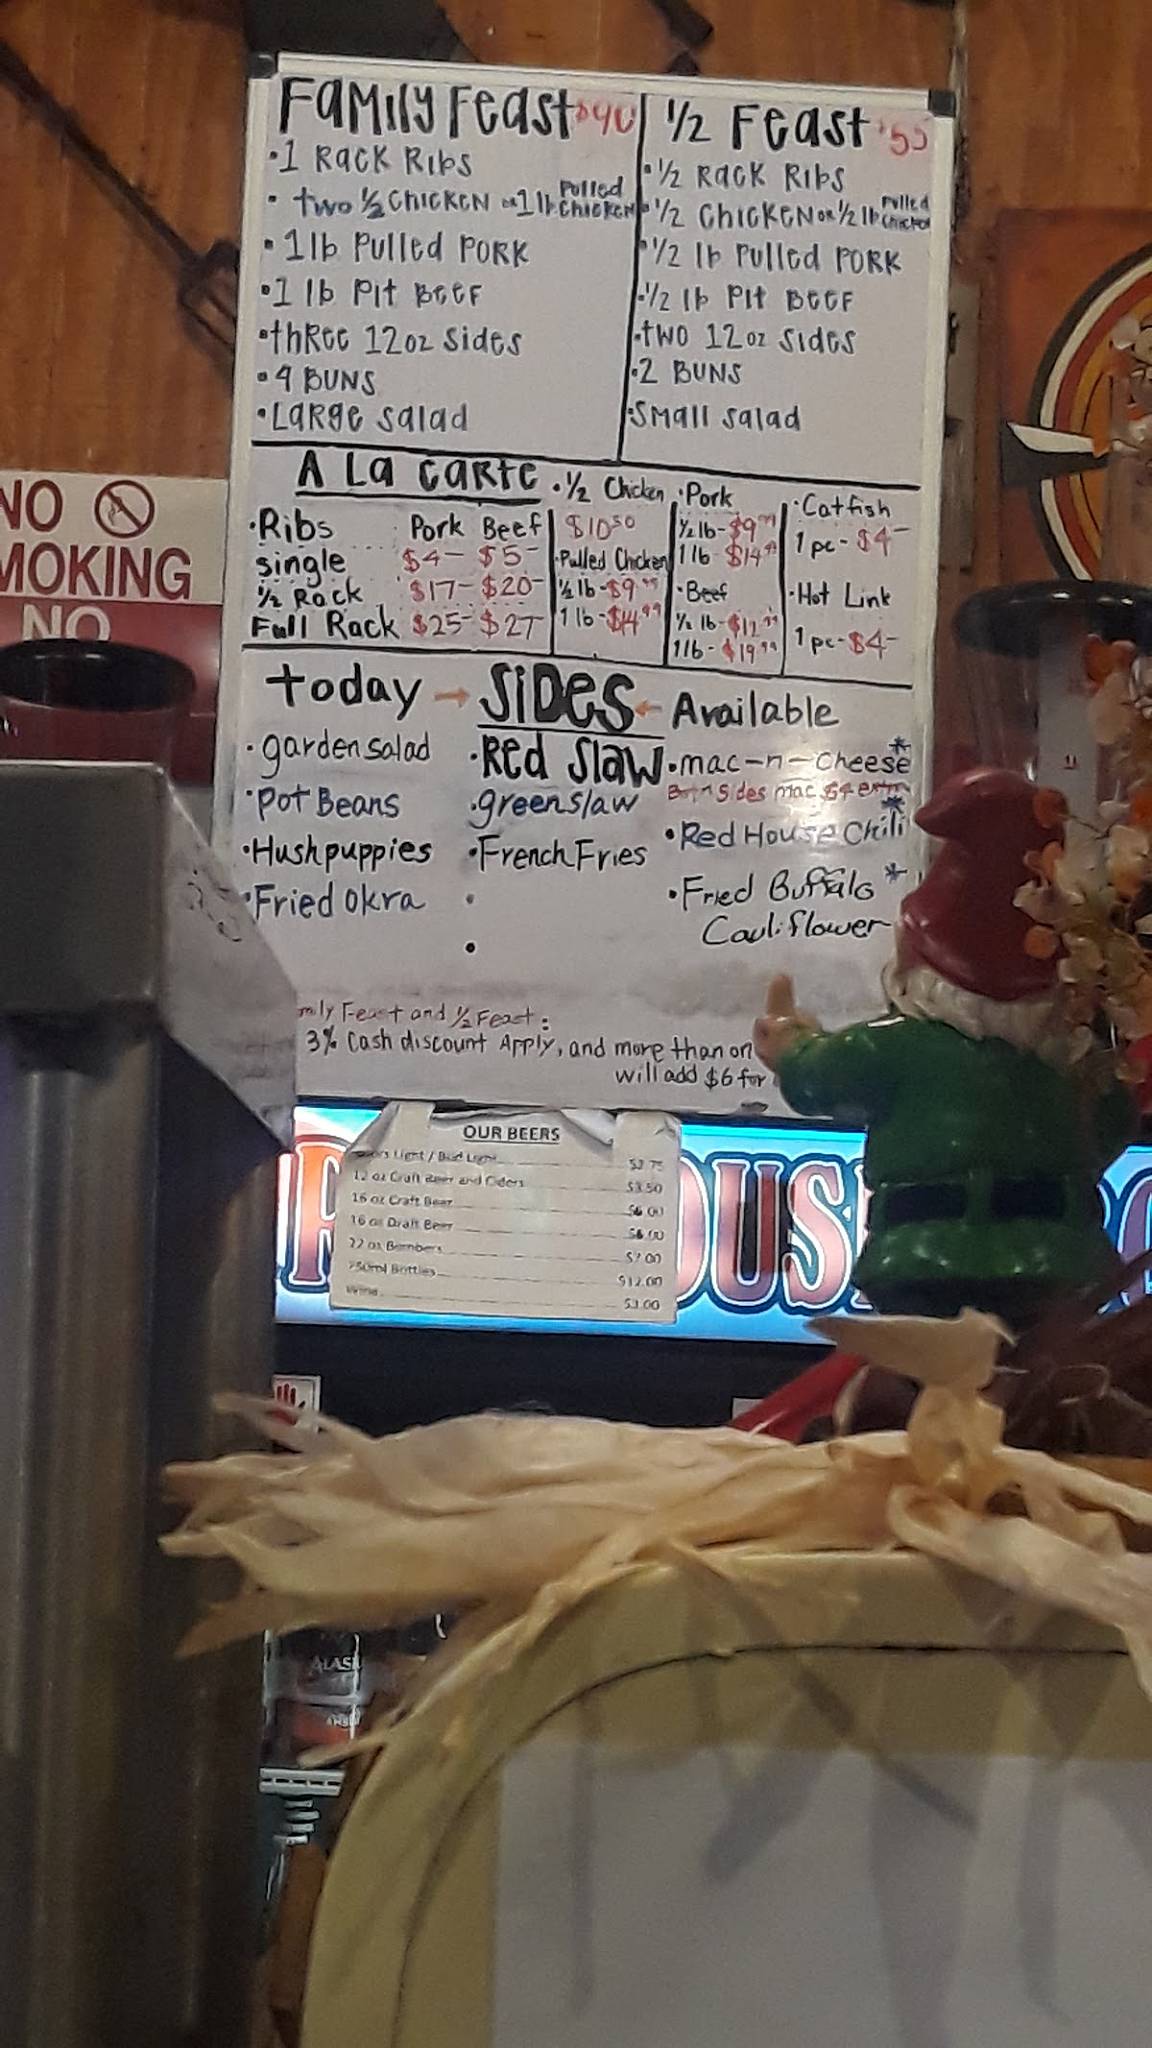 Family Feast $90
• 1 Rack Ribs
• two ½ Chicken or 1 lb Pulled Chicken
• 1 lb Pulled Pork
• 1 lb Pit Beef
• three 12oz Sides
• 4 Buns
• Large Salad
½ Feast $55
• ½ Rack Ribs
• ½ Chicken or ½ lb Pulled Chicken
• ½ lb Pulled Pork
• ½ lb Pit Beef
• two 12oz Sides
• 2 Buns
• Small Salad
A La Carte
• Ribs Pork Beef
single $4- $5-
½ Rack $17- $20-
Full Rack $25- $27-
• ½ Chicken
$10.50
• Pulled Chicken
½ lb - $9.99
1 lb - $14.99
• Pork
½ lb - $9.99
1 lb - $14.99
• Beef
½ lb - $12.99
1 lb - $19.99
• Catfish
1 pc - $4-
• Hot Link
1 pc - $4-
today → Sides ← Available
• garden salad
• Pot Beans
• Hushpuppies
• Fried Okra
• Red Slaw
• green slaw
• French Fries
• mac-n-cheese *
Both Sides mac $4 extra
• Red House Chili *
• Fried Buffalo *
Cauliflower
mily Feast and ½ Feast:
3% Cash discount Apply, and more than on
will add $6 for
NO
MOKING
NO
OUR BEERS
Light / Bud Light $2.75
12 oz Craft Beer and Ciders $3.50
16 oz Craft Beer $6.00
16 oz Draft Beer $6.00
22 oz Bombers $7.00
750ml Bottles $12.00
Wine $3.00
OUS